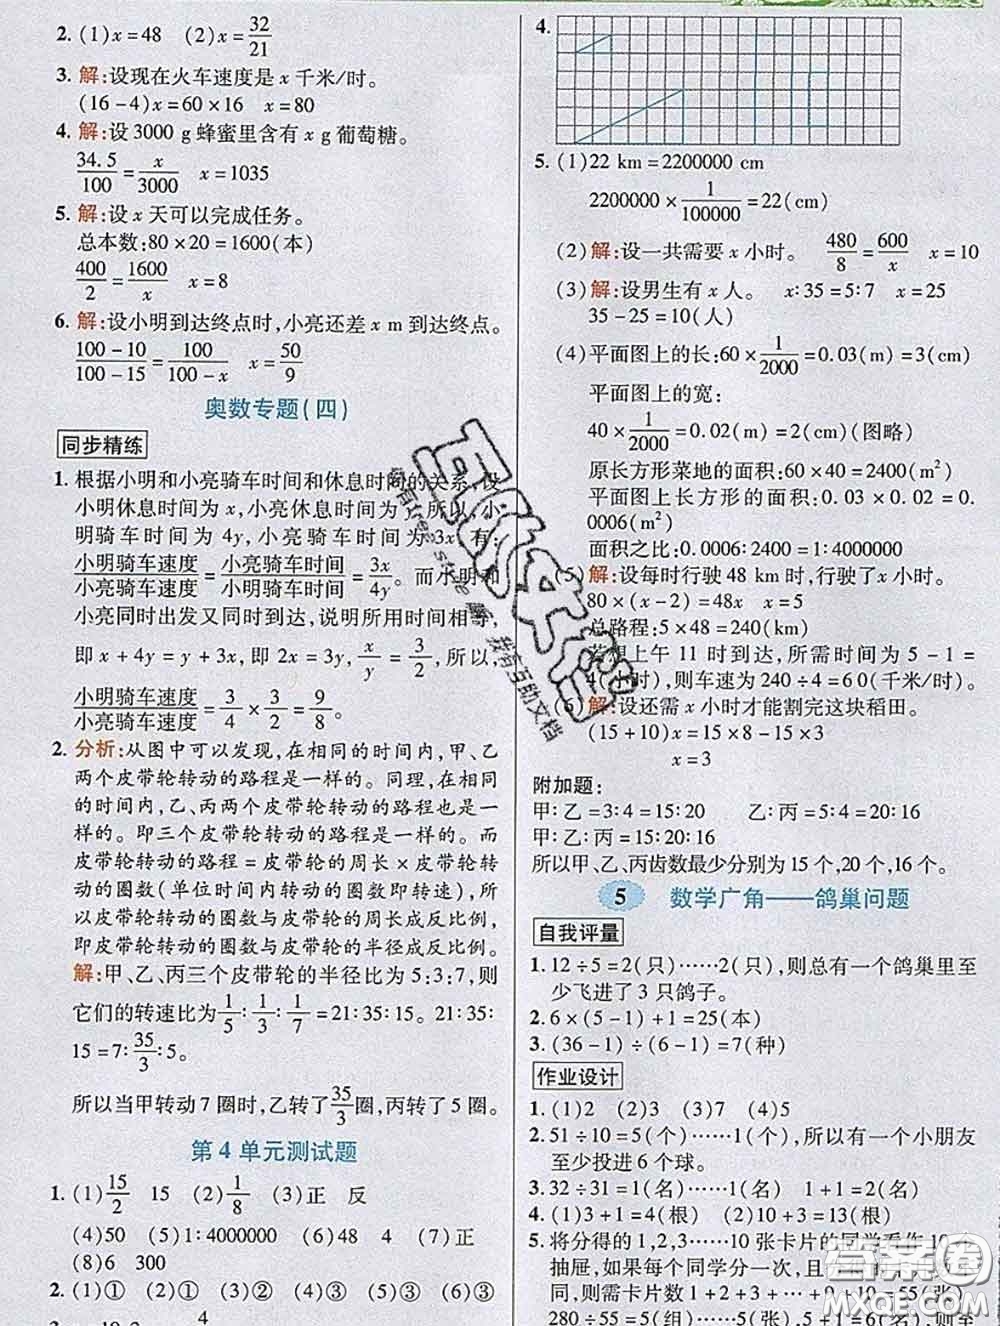 2. (1)x=48 (2)x=32/21
3. 解:设现在火车速度是 x 千米/时。
(16-4)x=60×16 x=80
4. 解:设 3000 g 蜂蜜里含有 x g 葡萄糖。
34.5/100=x/3000 x=1035
5. 解:设 x 天可以完成任务。
总本数:80×20=1600(本)
400/2=1600/x x=8
6. 解:设小明到达终点时,小亮还差 x m 到达终点。
(100-10)/(100-15)=100/(100-x) x=50/9
奥数专题(四)
同步精练
1. 根据小明和小亮骑车时间和休息时间的关系,设
小明休息时间为 x,小亮休息时间为 y,所以,小
明骑车时间为 4y,小亮骑车时间为 3x,有:
小明骑车速度/小亮骑车速度=小亮骑车时间/小明骑车时间=3x/4y。而小明和
小亮同时出发又同时到达,说明所用时间相等,
即 x+4y=y+3x,即 2x=3y,x/y=3/2,所以,
小明骑车速度/小亮骑车速度=3/4×3/2=9/8。
2. 分析:从图中可以发现,在相同的时间内,甲、乙
两个皮带轮转动的路程是一样的。同理,在相同
的时间内,乙、丙两个皮带轮转动的路程也是一
样的。即三个皮带轮转动的路程是一样的。而
皮带轮转动的路程=皮带轮的周长×皮带轮转
动的圈数(单位时间内转动的圈数即转速),所
以皮带轮转动的圈数与皮带轮的周长成反比例,
即皮带轮转动的圈数与皮带轮的半径成反比例。
解:甲、乙、丙三个皮带轮的半径比为 5:3:7,则
它们的转速比为1/5:1/3:1/7=21:35:15。21:35:
15=7:35/3:5。
所以当甲转动 7 圈时,乙转了35/3圈,丙转了 5 圈。
第 4 单元测试题
1. (1)15/2 15 (2)1/8 (3)正 反
(4)50 (5)1:4000000 (6)4 (7)正
(8)6 300
2. (1)① (2)① (3)② (4)③ (5)③
4.
5. (1)22 km=2200000 cm
2200000×1/100000=22(cm)
(2)解:设一共需要 x 小时。 480/8=600/x x=10
(3)解:设男生有 x 人。 x:35=5:7 x=25
35-25=10(人)
(4)平面图上的长:60×1/2000=0.03(m)=3(cm)
平面图上的宽:
40×1/2000=0.02(m)=2(cm)(图略)
原长方形菜地的面积:60×40=2400(m²)
平面图上长方形的面积:0.03×0.02=0.
0006(m²)
面积之比:0.0006:2400=1:4000000
(5)解:设每时行驶 48 km 时,行驶了 x 小时。
80×(x-2)=48x x=5
总路程:5×48=240(km)
若想上午 11 时到达,所需时间为 5-1=
4(小时),则车速为 240÷4=60(千米/时)。
(6)解:设还需 x 小时才能割完这块稻田。
(15+10)x=15×8-15×3
x=3
附加题:
甲:乙=3:4=15:20 乙:丙=5:4=20:16
甲:乙:丙=15:20:16
所以甲、乙、丙齿数最少分别为 15 个,20 个,16 个。
5 数学广角——鸽巢问题
自我评量
1. 12÷5=2(只)……2(只),则总有一个鸽巢里至
少飞进了 3 只鸽子。
2. 6×(5-1)+1=25(本)
3. (36-1)÷(6-1)=7(种)
作业设计
1. (1)2 (2)3 (3)4 (4)5
2. 51÷10=5(个)……1(个),所以有一个小朋友
至少投进 6 个球。
3. 32÷31=1(名)……1(名) 1+1=2(名)
4. (1)3+1=4(根) (2)10+3=13(根)
5. 将分得的 1,2,3……10 张卡片的同学看作 10 个
抽屉,如果每个同学分一次,且
同,则需卡片数 1+2+3+…+9+10=55(张),
280÷55=5(组)……5(张),5+1=
答案圈
MXQE.COM